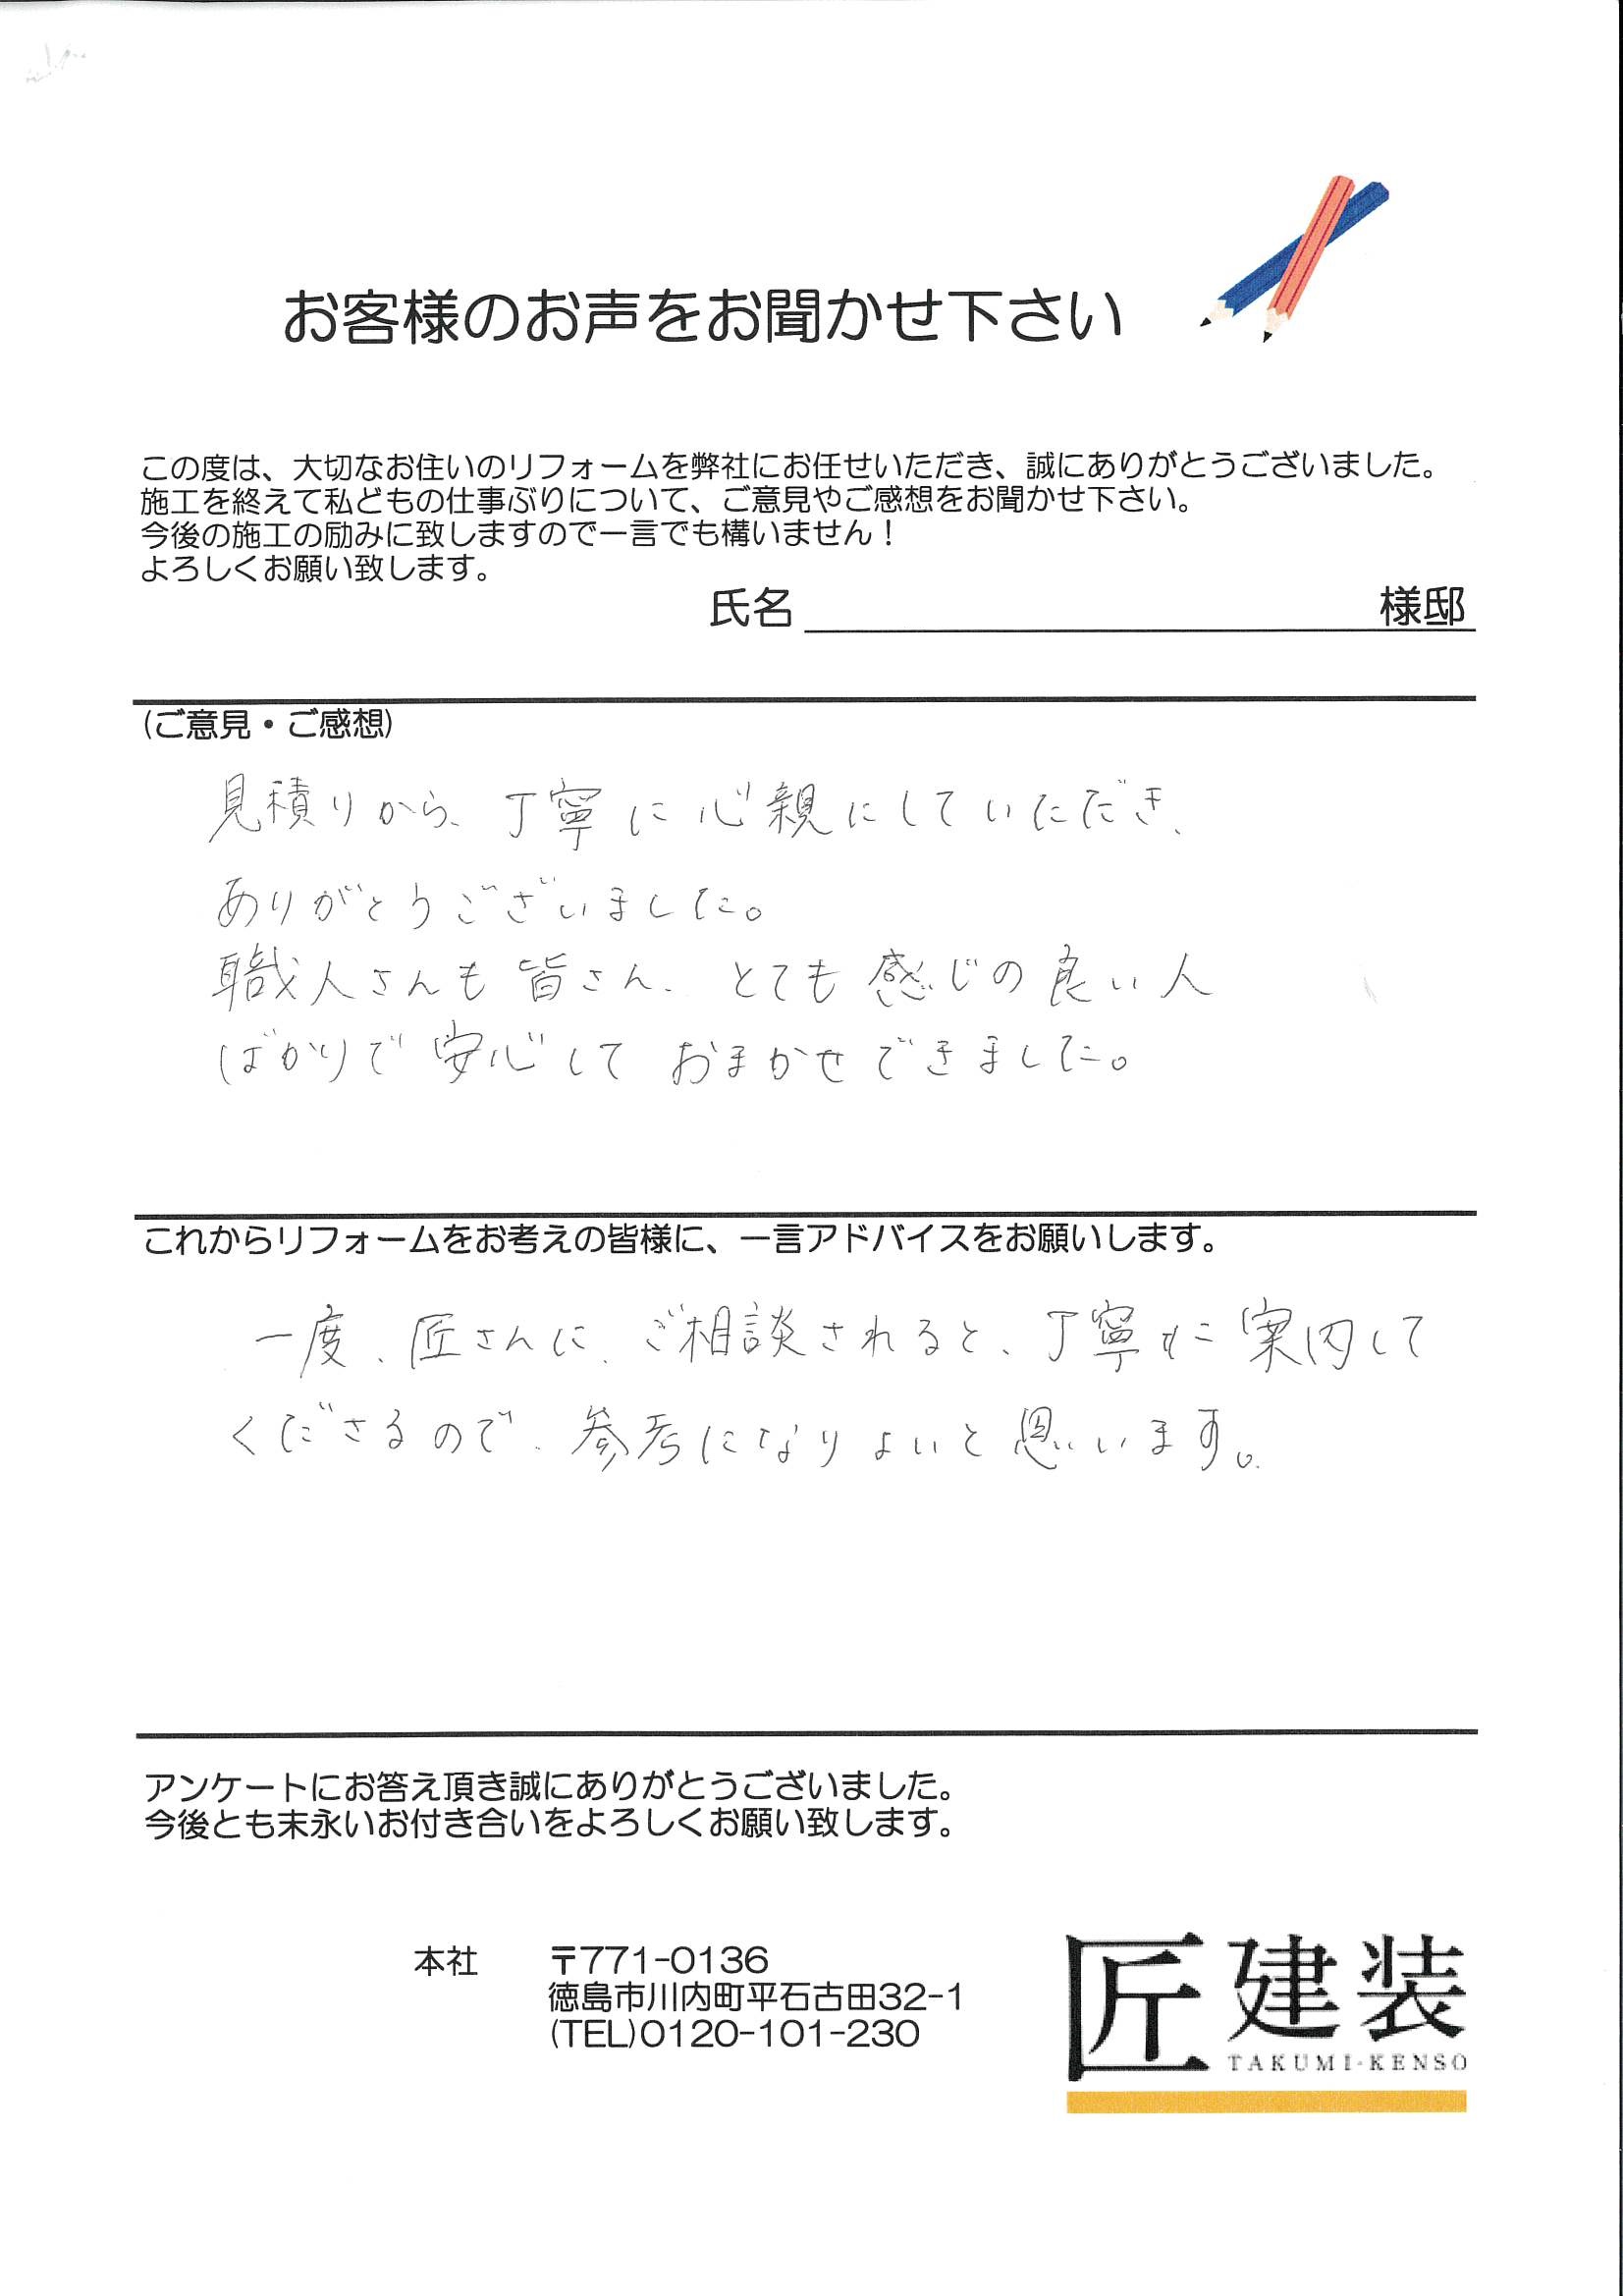 お客様のお声をお聞かせ下さい
この度は、大切なお住いのリフォームを弊社にお任せいただき、誠にありがとうございました。
施工を終えて私どもの仕事ぶりについて、ご意見やご感想をお聞かせ下さい。
今後の施工の励みに致しますので一言でも構いません！
よろしくお願い致します。
氏名 様邸
(ご意見・ご感想)
見積りから、丁寧に心親にしていただき、
ありがとうございました。
職人さんも皆さん、とても感じの良い人
ばかりで安心しておまかせできました。
これからリフォームをお考えの皆様に、一言アドバイスをお願いします。
一度、匠さんに、ご相談されると、丁寧に案内して
くださるので、参考になりよいと思います。
アンケートにお答え頂き誠にありがとうございました。
今後とも末永いお付き合いをよろしくお願い致します。
本社 〒771-0136
徳島市川内町平石古田32-1
(TEL)0120-101-230
匠建装
TAKUMI-KENSO